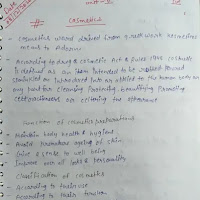 Date
unit - V
# Cosmetics
- Cosmetics word drived from greek work kosmesticos
means to Adorn
- According to drug & cosmetic Act & Rules 1940 cosmetic
is defined as an item intended to be rubbed poured
sprinkled or introduced into or applied to the human body or
any part for cleaning Promoting beautifying Promoting
attractiveness or altering the appearance
Function of cosmetics preparations
- Maintain body health & hygiene
- Avoid premature ageing of skin
- Give a sense to well being
- Improve overall looks & personality
Classification of cosmetics
- According to their use
- According to their function